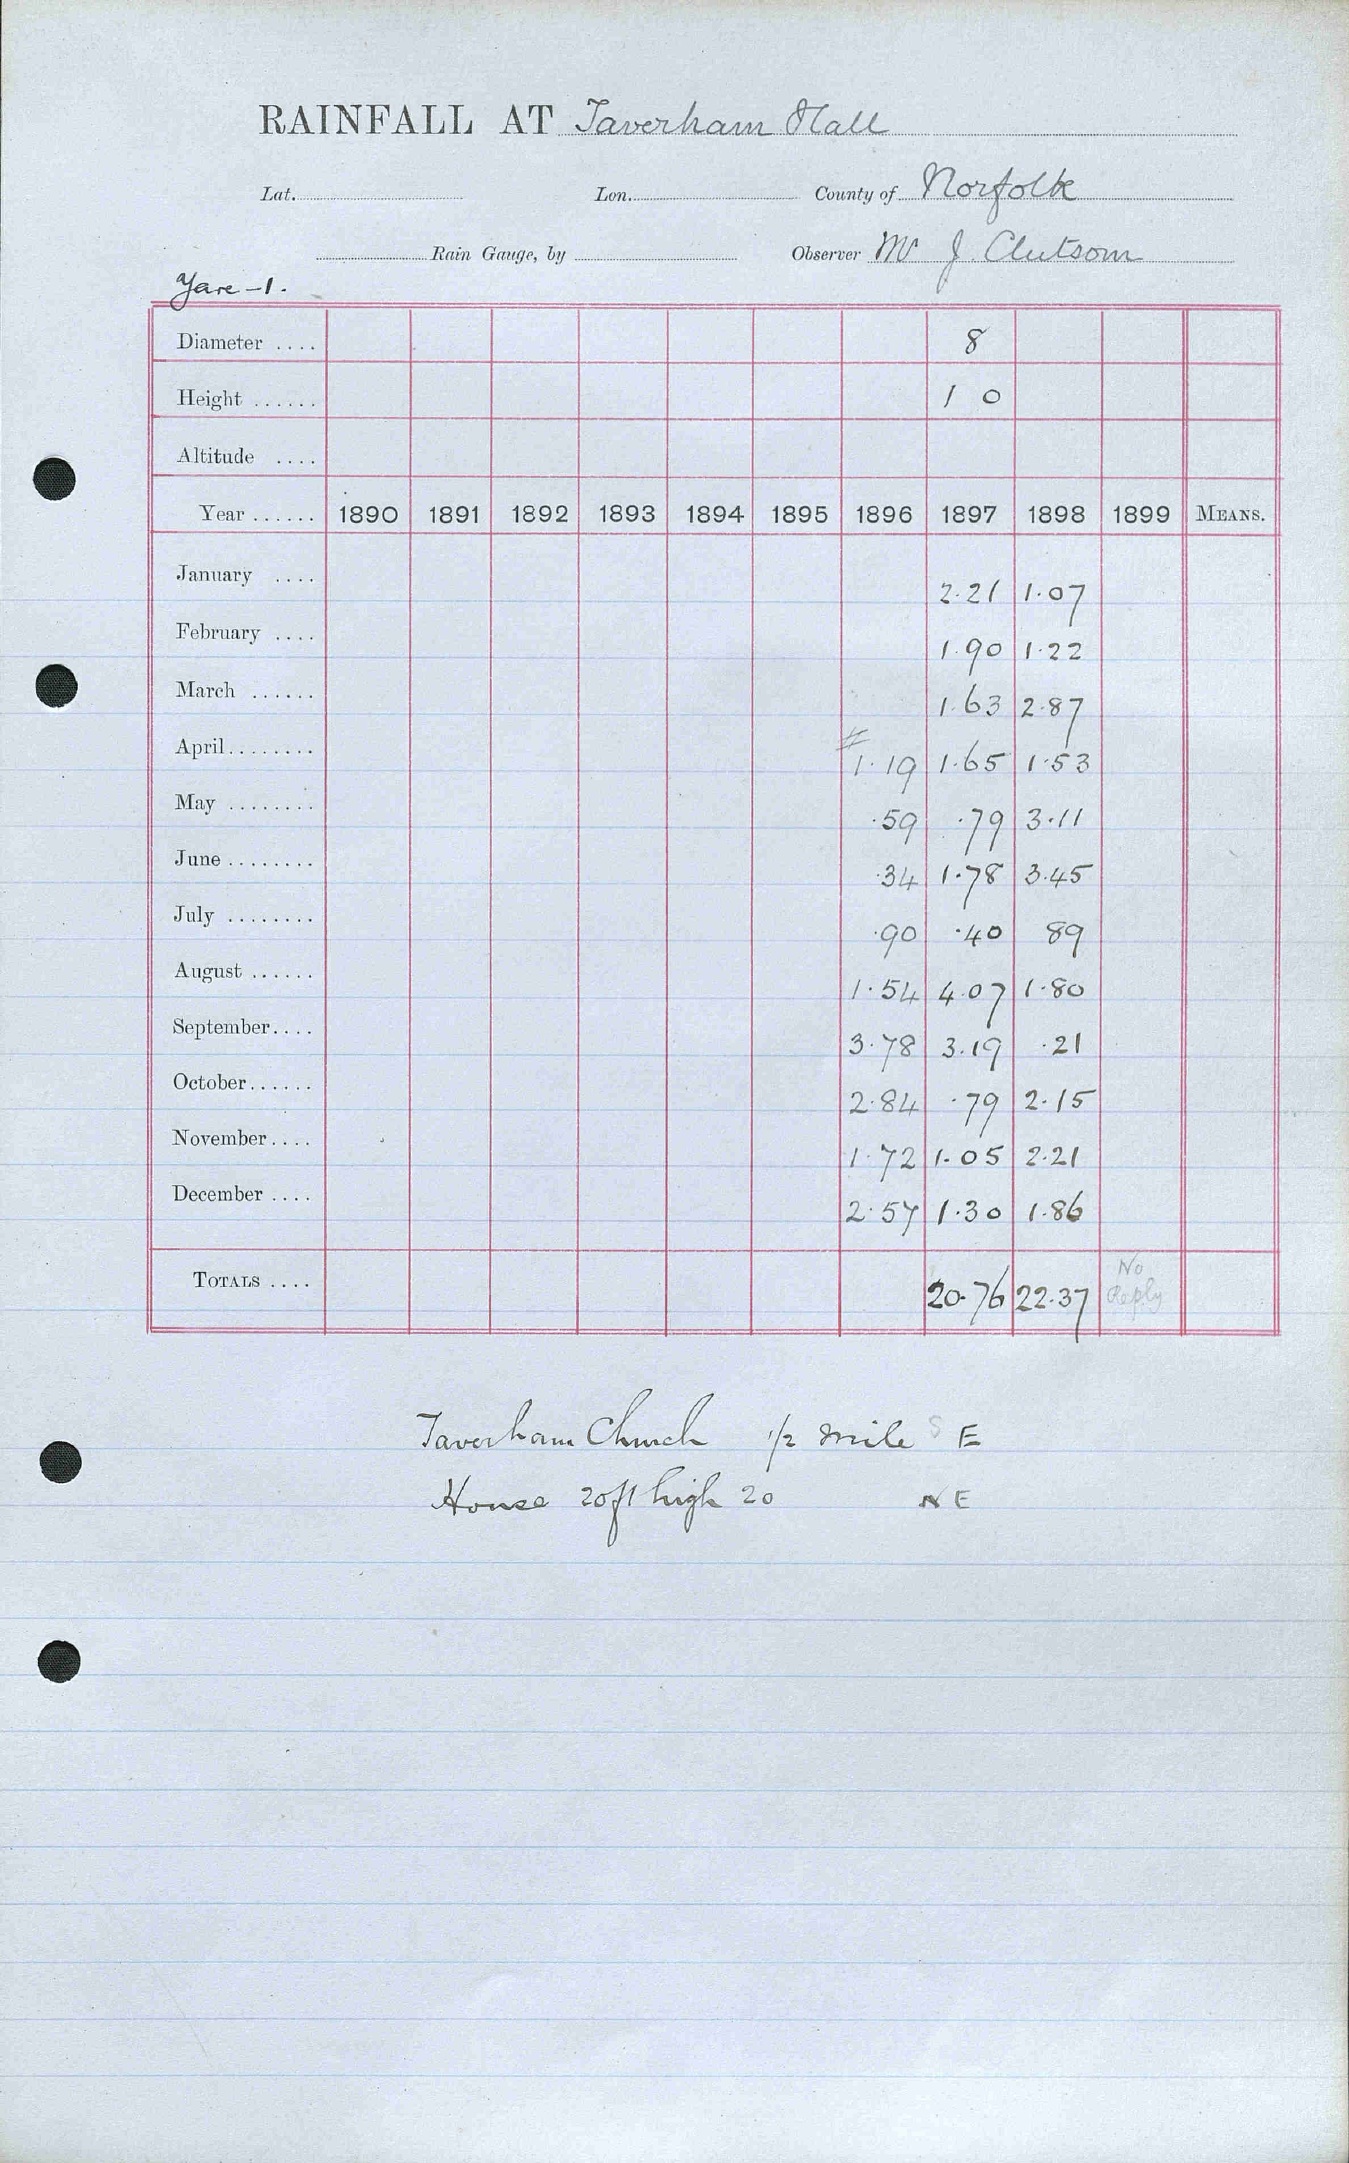 RAINFALL AT Taverham Hall
Lat. Lon. County of Norfolk
Rain Gauge, by Observer Mr J. Clutsom
Yare - 1.
Diameter .... 8
Height ...... 1 0
Altitude ....
Year ...... 1890 1891 1892 1893 1894 1895 1896 1897 1898 1899 MEANS.
January .... 2.21 1.07
February .... 1.90 1.22
March ...... 1.63 2.87
April........ 1.19 1.65 1.53
May ........ .59 .79 3.11
June ........ .34 1.78 3.45
July ........ .90 .40 89
August ...... 1.54 4.07 1.80
September.... 3.78 3.19 .21
October...... 2.84 .79 2.15
November.... 1.72 1.05 2.21
December .... 2.57 1.30 1.86
TOTALS .... 20.76 22.37 No Reply
Taverham Church 1/2 mile S E
House 20ft high 20 N E